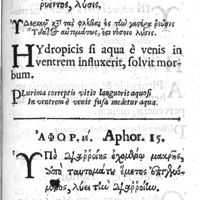 ρυέντος, λύσις.
Ὑδρωπι κῇ τὰς φλέβας ἐς τὼ γαστέρ ῥεύσις
Hydropicis si aqua è venis in
ventrem influxerit, solvit mor-
bum.
Plurima correptis vitio languoris aquosi
In ventrem è venis fusa medetur aqua.
ἈΦΟΡ. ιέ. Aphor. 15.
Ὑπὸ διαῤῥοίης ἐχομένῳ μακρῆς,
ἀπὸ ταυτομάτου ἔμετος ἐπιγενό-
μενος, λύει τὴν διάῤῥοιαν.